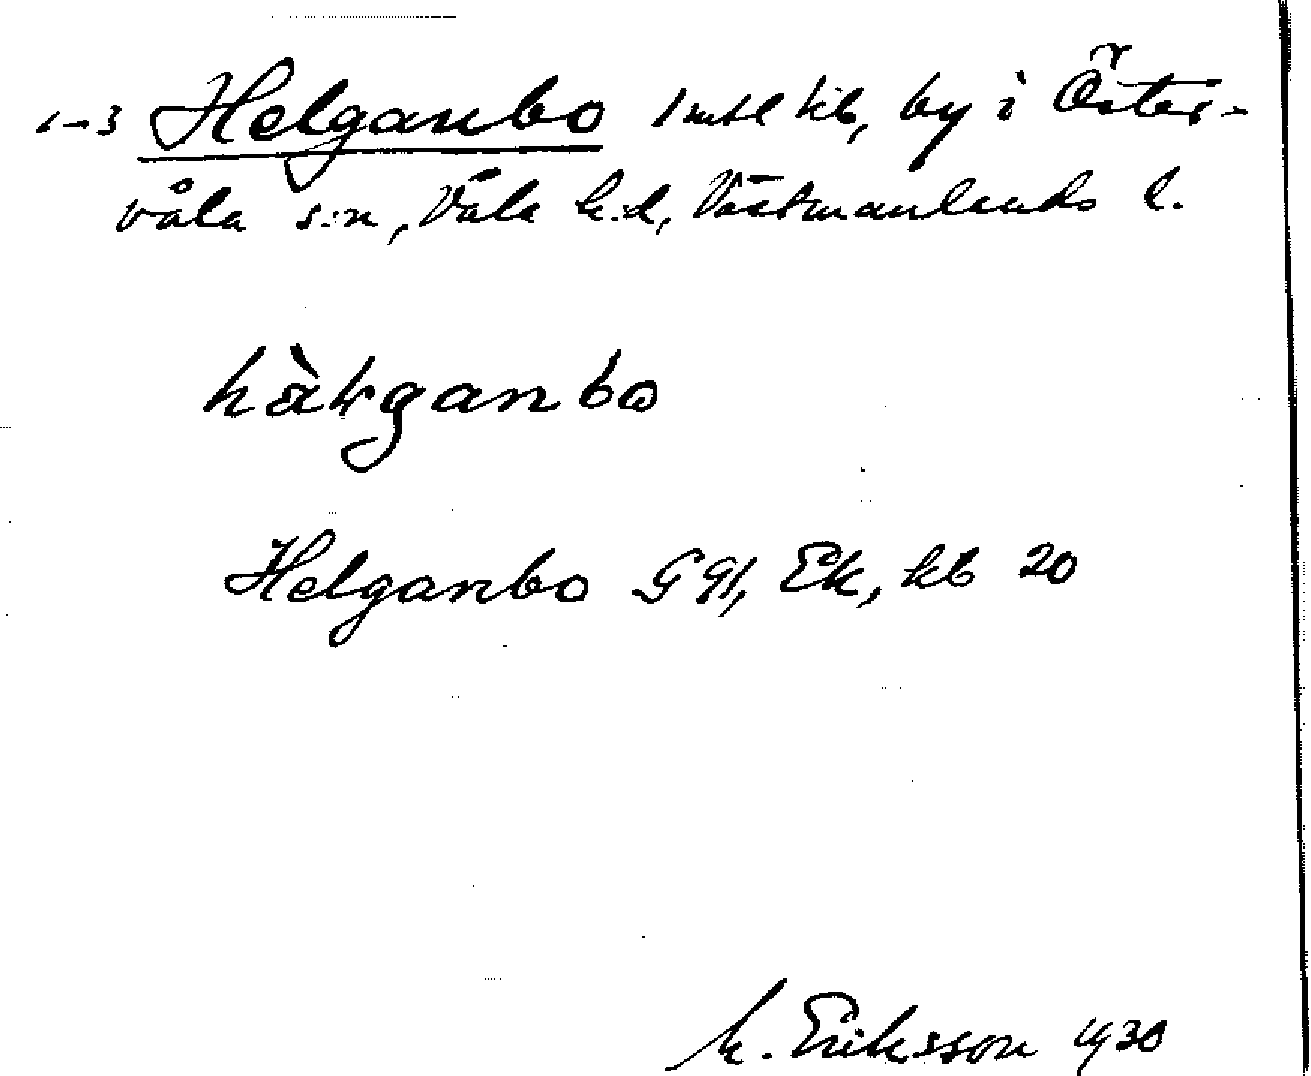 1-3 Helganbo 1 mtl kb, by i Öster-
våla s:n, Våla h:d, Västmanlands l.
hàlganbo
Helganbo G 91, Ek, kb 20
M. Eriksson 1930